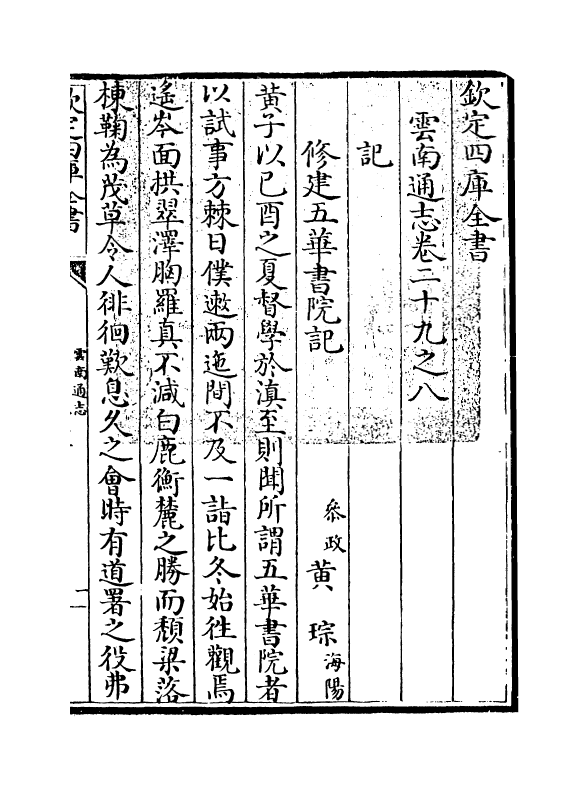 欽定四庫全書
雲南通志卷二十九之八
記
修建五華書院記
參政黃琮海陽
黃子以已酉之夏督學於滇至則聞所謂五華書院者
以試事方棘日僕遬兩迤間不及一詣比冬始徃觀焉
遙岑面拱翠澤胸羅真不減白鹿衡麓之勝而頽梁落
棟鞠為茂草令人徘徊歎息久之會時有道署之役弗
欽定四庫全書
雲南通志